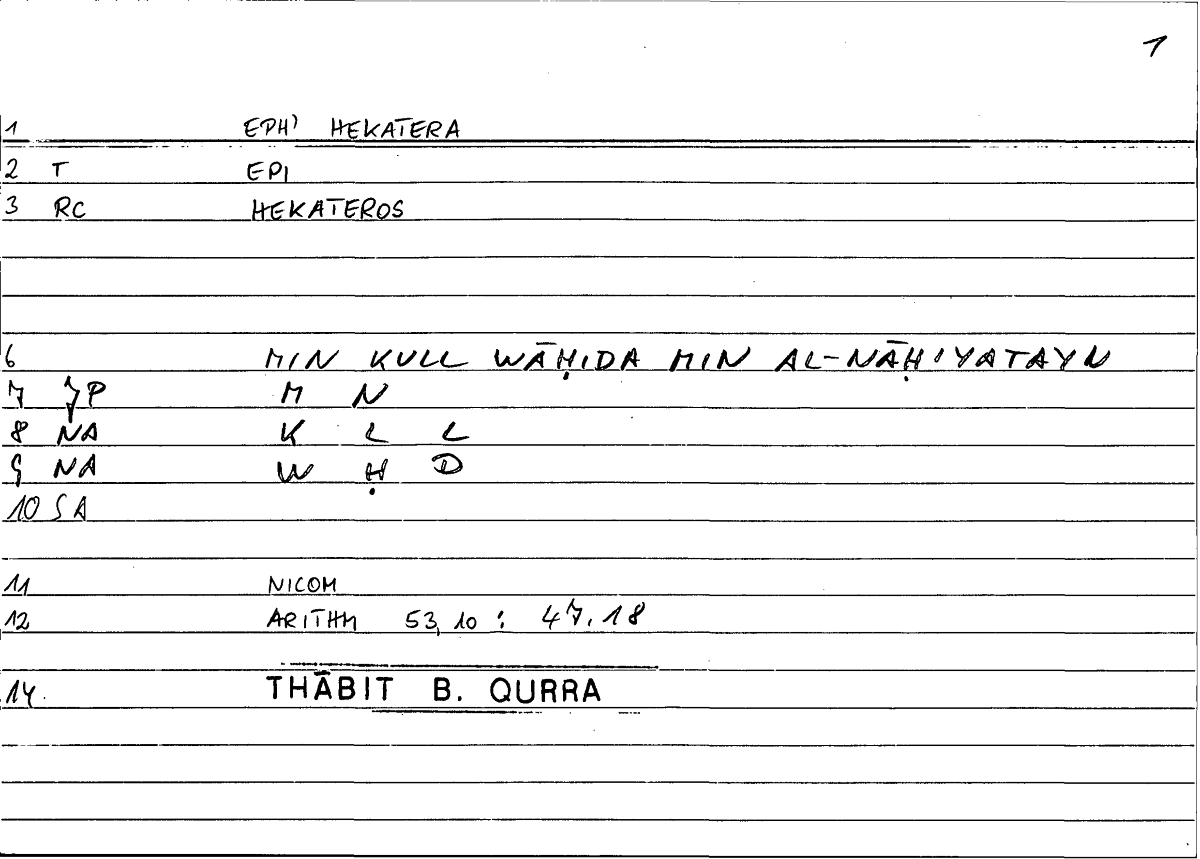 1
1 EPH' HEKATERA
2 T EPI
3 RC HEKATEROS
6 MIN KULL WĀḤIDA MIN AL-NĀḤIYATAYN
7 JP M N
8 NA K L L
9 NA W Ḥ D
10 SA
11 NICOM
12 ARITHM 53,10 : 47.18
14. THĀBIT B. QURRA